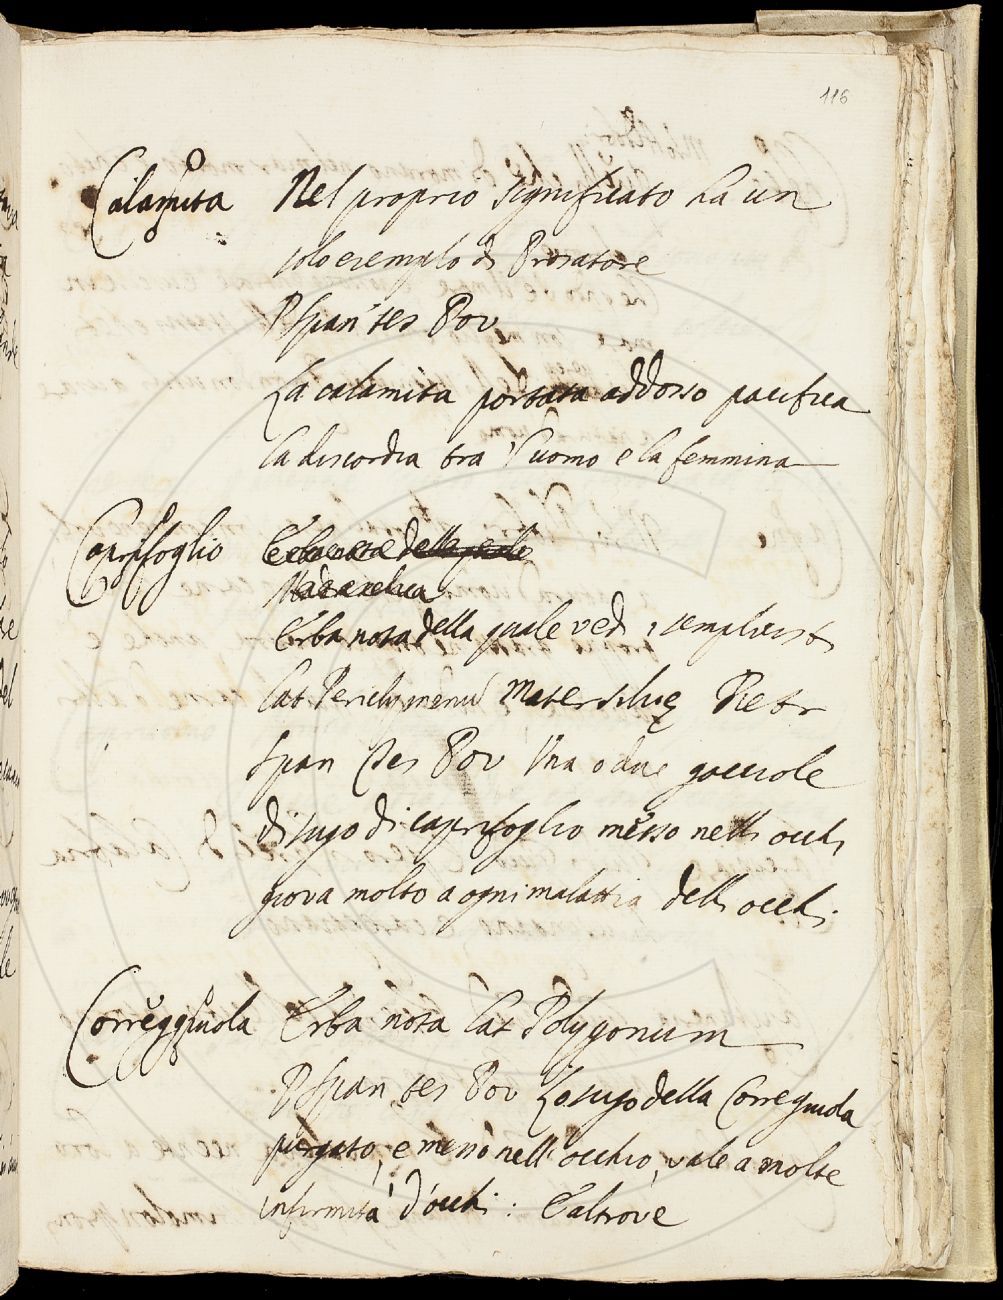 116
Calamita Nel proprio significato ha un
solo esemplo di Prosatore
P Span tes Pov
La calamita portata addosso pacifica
la discordia tra l'uomo e la femmina
Caprifoglio
Erba nota della quale vedi i semplicisti
lat Periclymenu Matersilve Pietr
Span Tes Pov Una o due gocciole
di sugo di caprifoglio messo nelli occhi
giova molto a ogni malattia delli occhi.
Correggiuola Erba nota lat Polygonum
P Span tes Pov Lo sugo della Correguola
purgato, e messo nell'occhio, vale a molte
infirmità d'occhi: E altrove